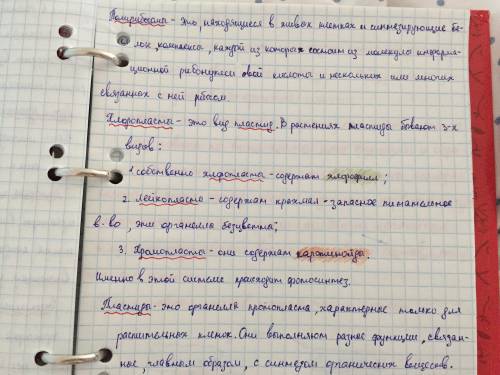 Полирибосомы - это, находящиеся в живых клетках и синтезирующие бе-
лок комплексы, каждой из которых состоит из молекулы информа-
ционной рибонуклеиновой кислоты и нескольких или многих
связанных с ней рибосом.
Хлоропласты - это вид пластид. В растениях пластиды бывают 3-х
видов:
1. собственно хлоропласты - содержат хлорофилл;
2. Лейкопласты - содержат крахмал - запасное питательное
в-во, эти органеллы бесцветны;
3. Хромопласты - они содержат каротиноиды.
Именно в этой системе происходит фотосинтез.
Пластиды - это органеллы протопласта, характерные только для
растительных клеток. Они выполняют разные функции, связан-
ные, главным образом, с синтезом органических веществ.